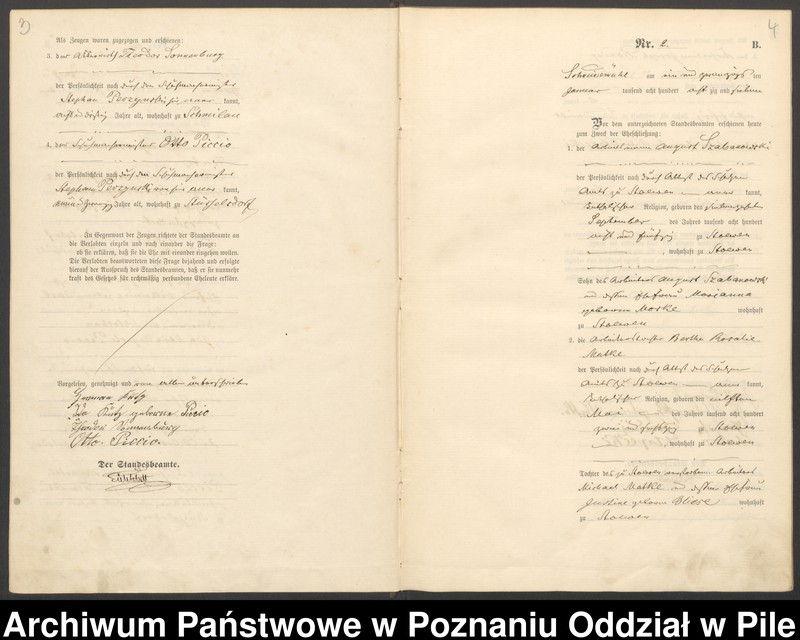 3
Als Zeugen waren zugezogen und erschienen:
3. der Theodor Sonnenburg
der Persönlichkeit nach durch den Schuhmachermeister
Stephan Perzynski kannt,
Jahre alt, wohnhaft zu Schneidemühl
4. der Schuhmachermeister Otto Piccio
der Persönlichkeit nach durch den Schuhmachermeister
Stephan Perzynski kannt,
Jahre alt, wohnhaft zu
In Gegenwart der Zeugen richtete der Standesbeamte an
die Verlobten einzeln und nach einander die Frage:
ob sie erklären, daß sie die Ehe mit einander eingehen wollen.
Die Verlobten beantworteten diese Frage bejahend und erfolgte
hierauf der Ausspruch des Standesbeamten, daß er sie nunmehr
kraft des Gesetzes für rechtmäßig verbundene Eheleute erkläre.
Vorgelesen, genehmigt und von allen unterschrieben
Herman Kutz
Ida Kutz geborene Piccio
Theodor Sonnenburg
Otto Piccio
Der Standesbeamte.
4
Nr. 2. B.
Schneidemühl am ein und zwanzigsten
Januar tausend acht hundert acht zig und sieben
Vor dem unterzeichneten Standesbeamten erschienen heute
zum Zweck der Eheschließung:
1. der Arbeitsmann August Szabanowski
der Persönlichkeit nach durch Attest des Schulzen
Amts zu Stoewen kannt,
katholischer Religion, geboren den
September des Jahres tausend acht hundert
und fünfzig zu Stoewen
, wohnhaft zu Stoewen
Sohn des Arbeiters August Szabanowski
und dessen Ehefrau Marianna
geborenen wohnhaft
zu Stoewen
2. die Bertha Rosalie
Matke
der Persönlichkeit nach durch Attest des Schulzen
Amts zu Stoewen kannt,
Religion, geboren den elften
Mai des Jahres tausend acht hundert
zwei und sechszig zu Stoewen
, wohnhaft zu Stoewen
Tochter des zu Stoewen verstorbenen Arbeiters
Michael Matke und dessen Ehefrau
Justine geborene Bliese wohnhaft
zu Stoewen
Archiwum Państwowe w Poznaniu Oddział w Pile